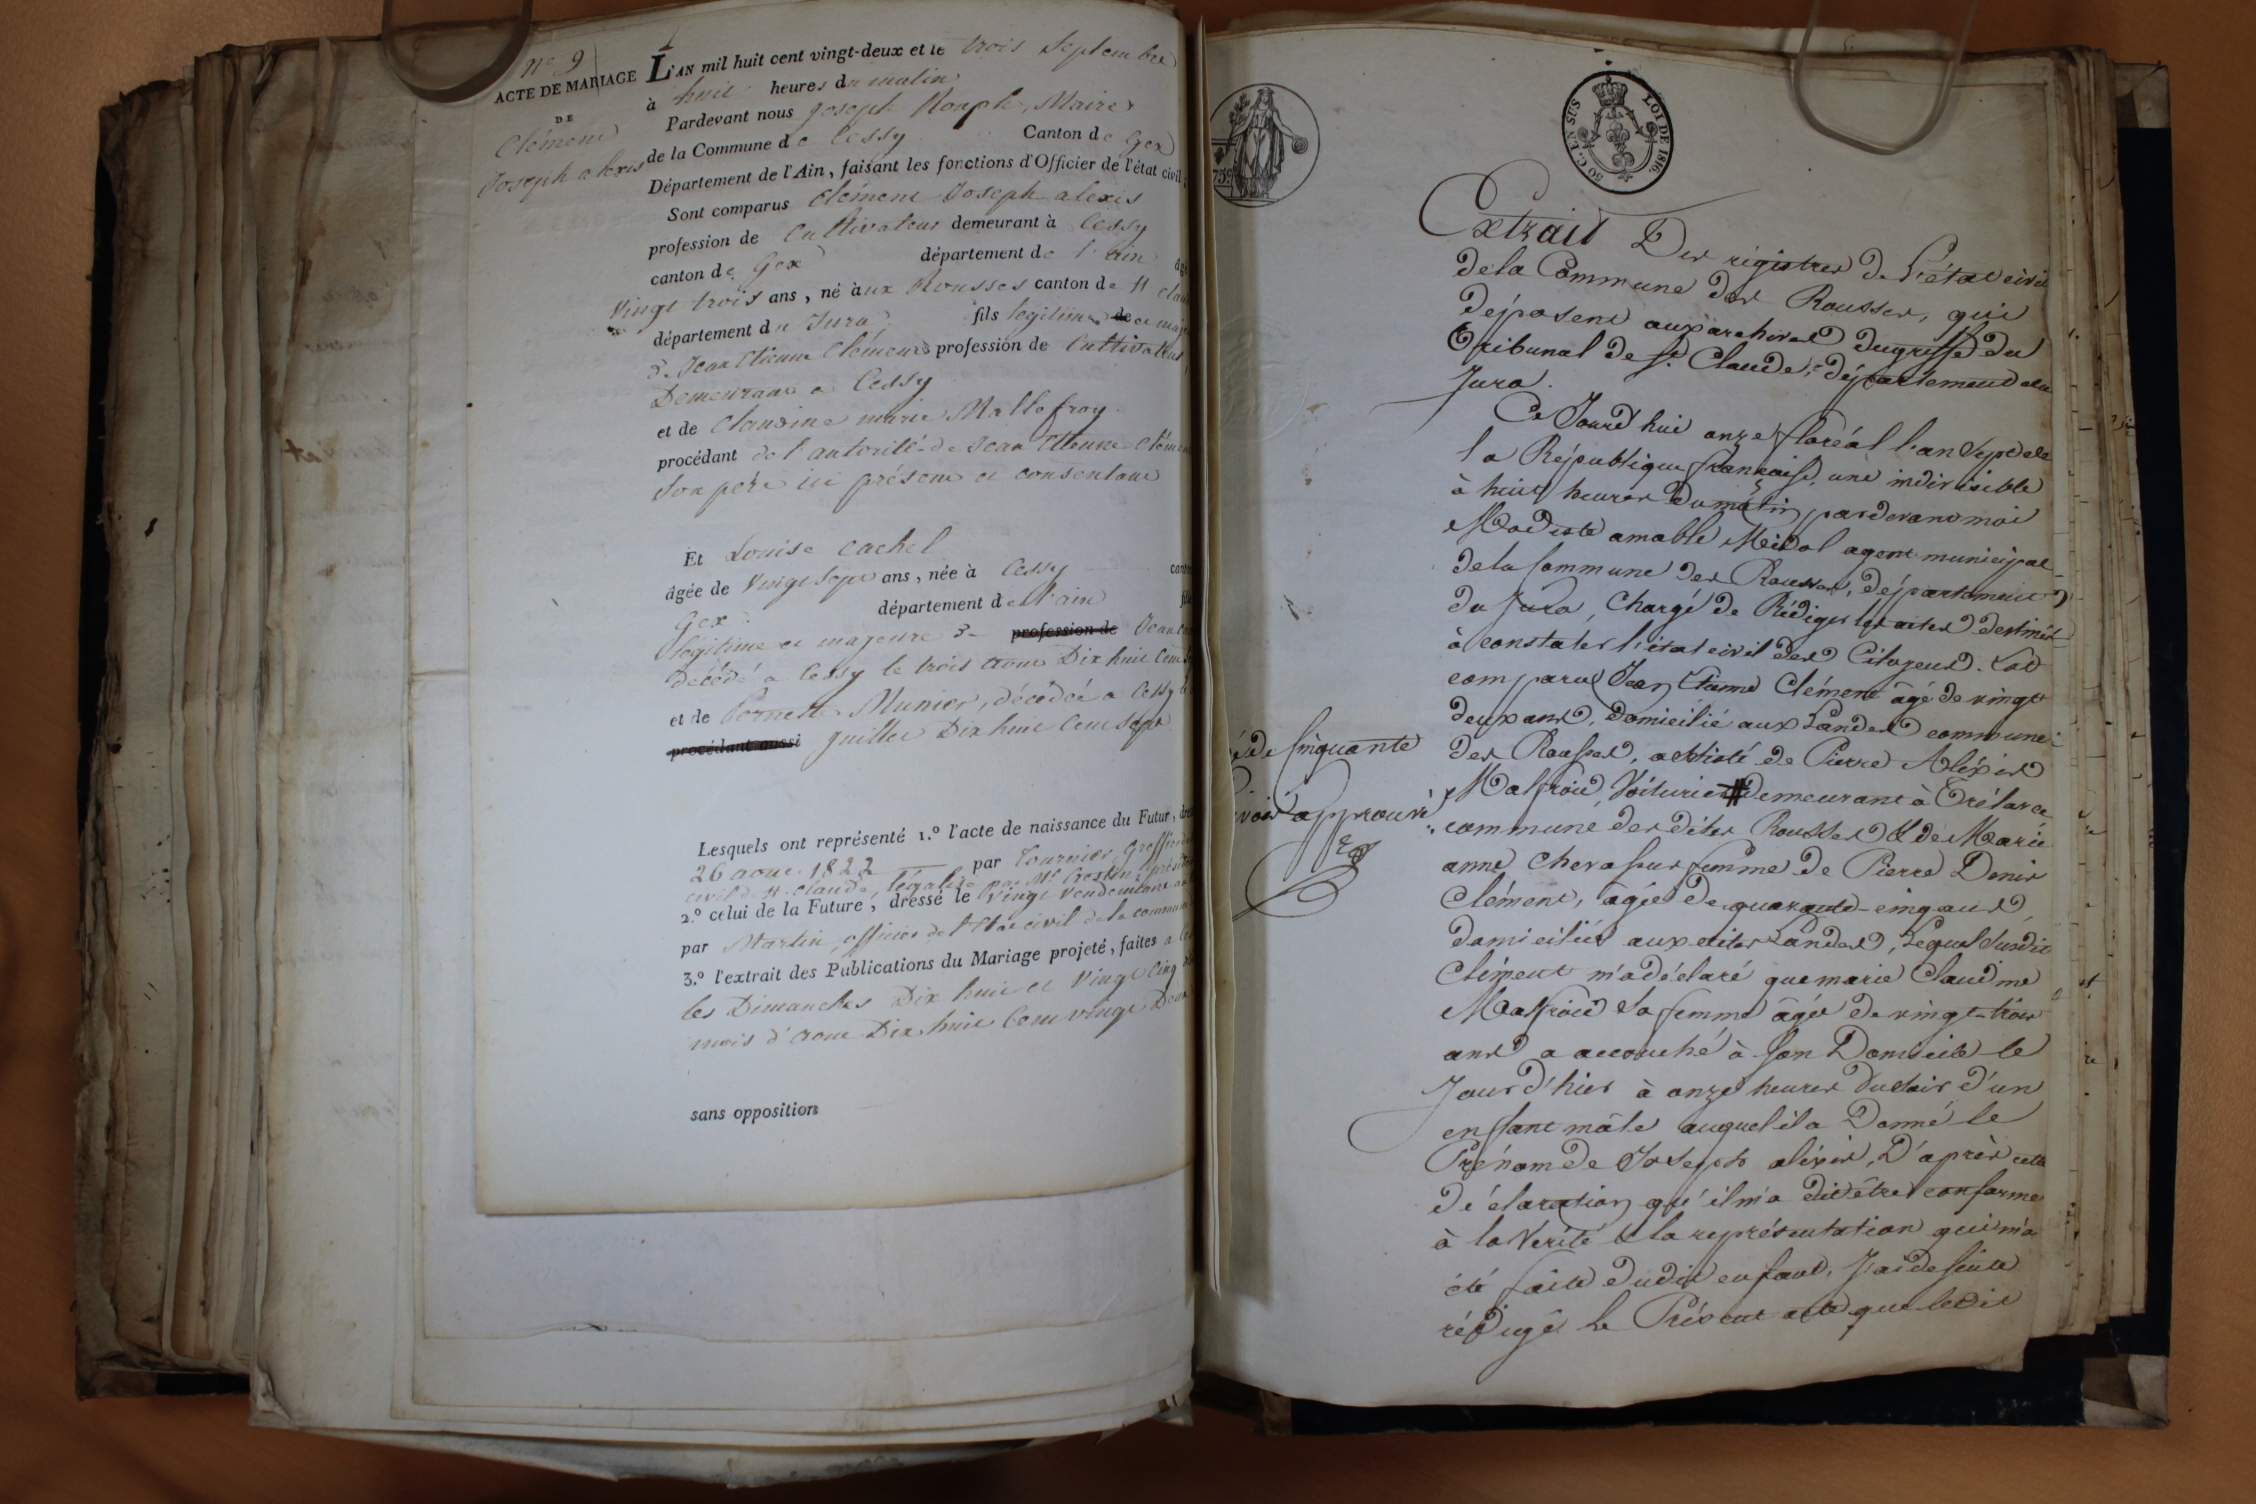 N° 9
ACTE DE MARIAGE
DE
Clément
Joseph alexis
L'AN mil huit cent vingt-deux et le trois Septembre
à huit heures du matin
Pardevant nous Joseph Maire
de la Commune de Cessy Canton de Gex
Département de l'Ain, faisant les fonctions d'Officier de l'état civil,
Sont comparus Clément Joseph alexis
profession de Cultivateur demeurant à Cessy
canton de Gex département de l'ain âgé
Vingt trois ans, né aux Rousses canton de St Claude
département du Jura fils légitime de et majeur
de Jean Etienne Clément profession de Cultivateur
Demeurant a Cessy
et de Claudine marie Mallefroy
procédant de l'autorité de Jean Etienne Clément
Son père ici présent et consentant
Et Louise Cachet
âgée de Vingt Sept ans, née à Cessy canton
Gex département de l'ain fille
légitime et majeure de profession de Jean
décédé a Cessy le trois aout Dix huit Cent
et de Pernette Munier, décédée a Cessy le
procédant aussi juillet Dix huit Cent Sept
Lesquels ont représenté 1.° l'acte de naissance du Futur, dressé
26 aout 1822 par Tournier Greffier
civil de St Claude, légalisé par Mr Crestin président
2.° celui de la Future, dressé le Vingt Vendemiaire an
par Martin, officier de l'Etat civil de la commune
3.° l'extrait des Publications du Mariage projeté, faites a
les Dimanches Dix huit et Vingt Cinq du
mois d'aout Dix huit Cent vingt Deux
sans opposition
75c
50 C. EN SUS
LOI DE 1816.
Extrait Des registres de l'état civil
de la Commune des Rousses, qui
déposent aux archives du greffe du
Tribunal de St. Claude, département du
Jura.
Ce Jourd'hui onze floréal l'an Sept de
la République française, une indivisible
à huit heures du matin, pardevant moi
Modiste amable Midol agent municipal
de la Commune des Rousses, département
du Jura, chargé de Rédiger les actes destinés
à constater l'état civil des Citoyens. Est
comparu Jean Etienne Clément âgé de vingt
deux ans, domicilié aux Landes commune
des Rousses, assisté de Pierre Aléxis
Malfroid, Voiturier # demeurant à Trélarce
commune desdites Rousses & de Marie
anne Chevassus femme de Pierre Denis
Clément, âgée de quarante-cinq ans
domiciliés auxdites Landes, Lequel Susdit
Clément m'a déclaré que marie Claudine
Malfroid sa femme âgée de vingt-trois
ans a accouché à son Domicile le
Jour d'hier à onze heures du soir d'un
enfant mâle auquel il a Donné le
Prénom de Joseph aléxis, D'après cette
déclaration qu'il m'a dit être conforme
à la Vérité & la représentation qui m'a
été faite dudit enfant, J'ai desuite
rédigé le Présent acte que ledit
de Cinquante
approuvé